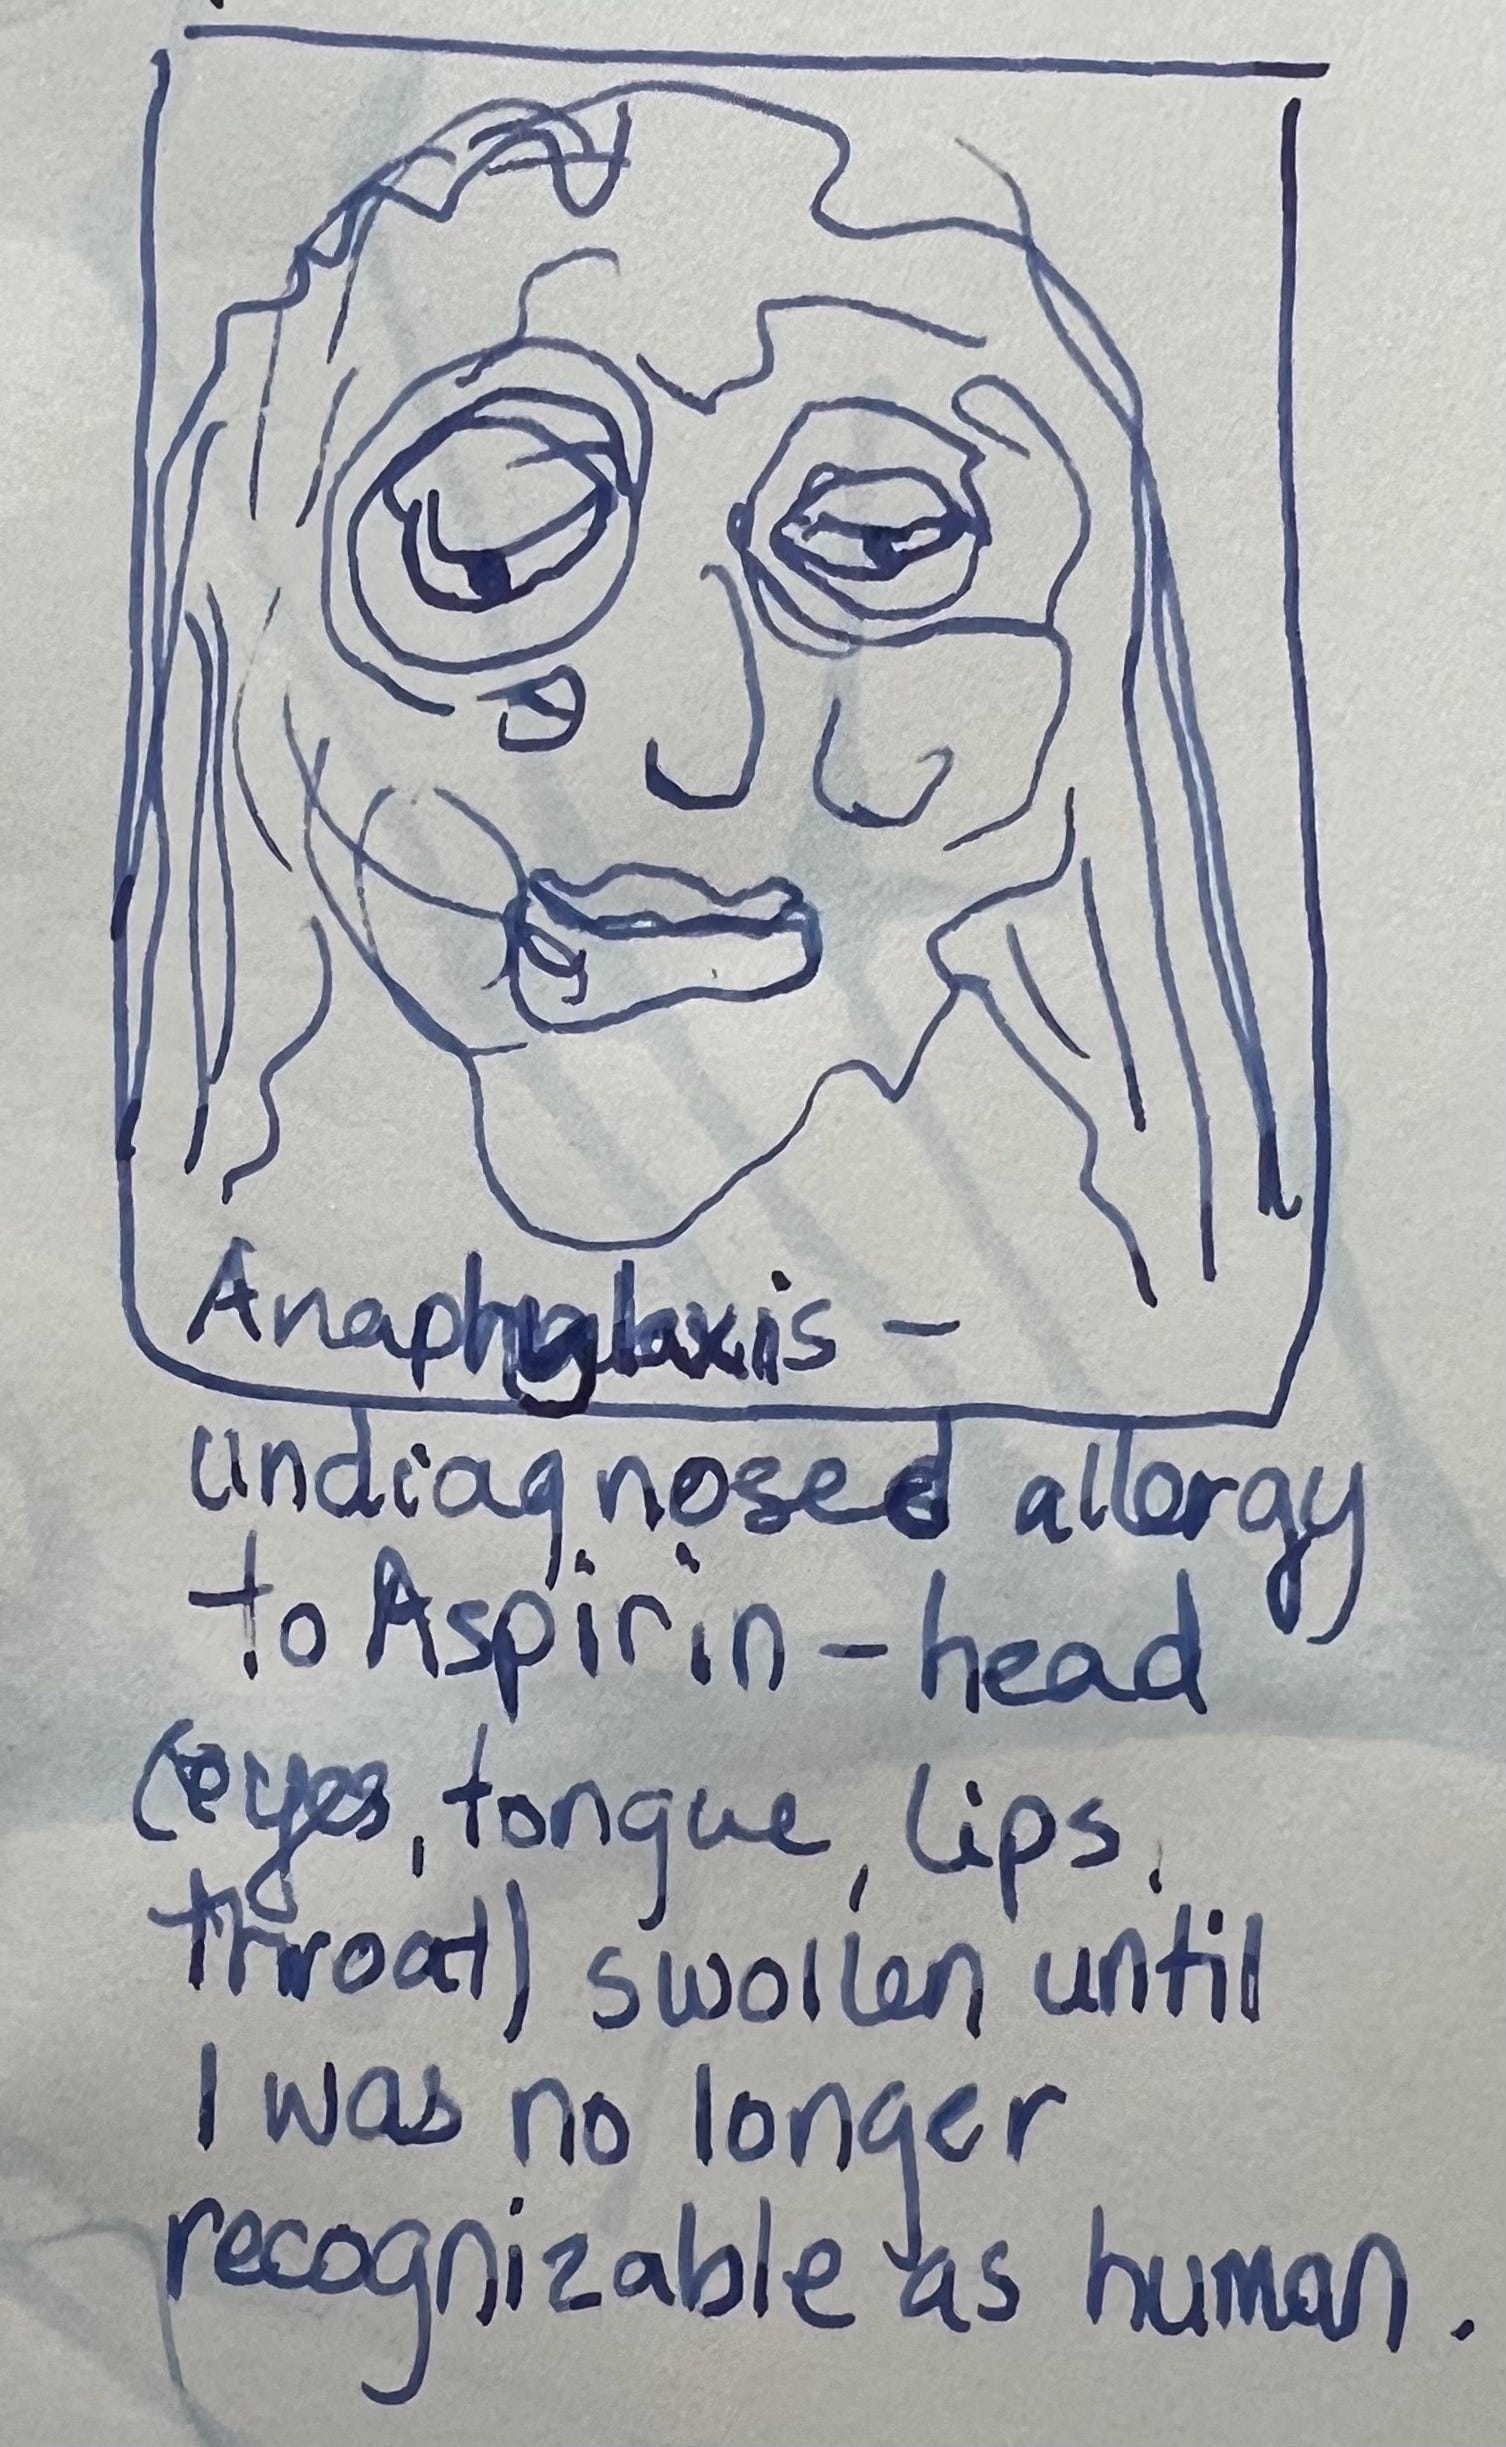 Anaphylaxis -
undiagnosed allergy
to Aspirin - head
(eyes, tongue, lips,
throat) swollen until
I was no longer
recognizable as human.